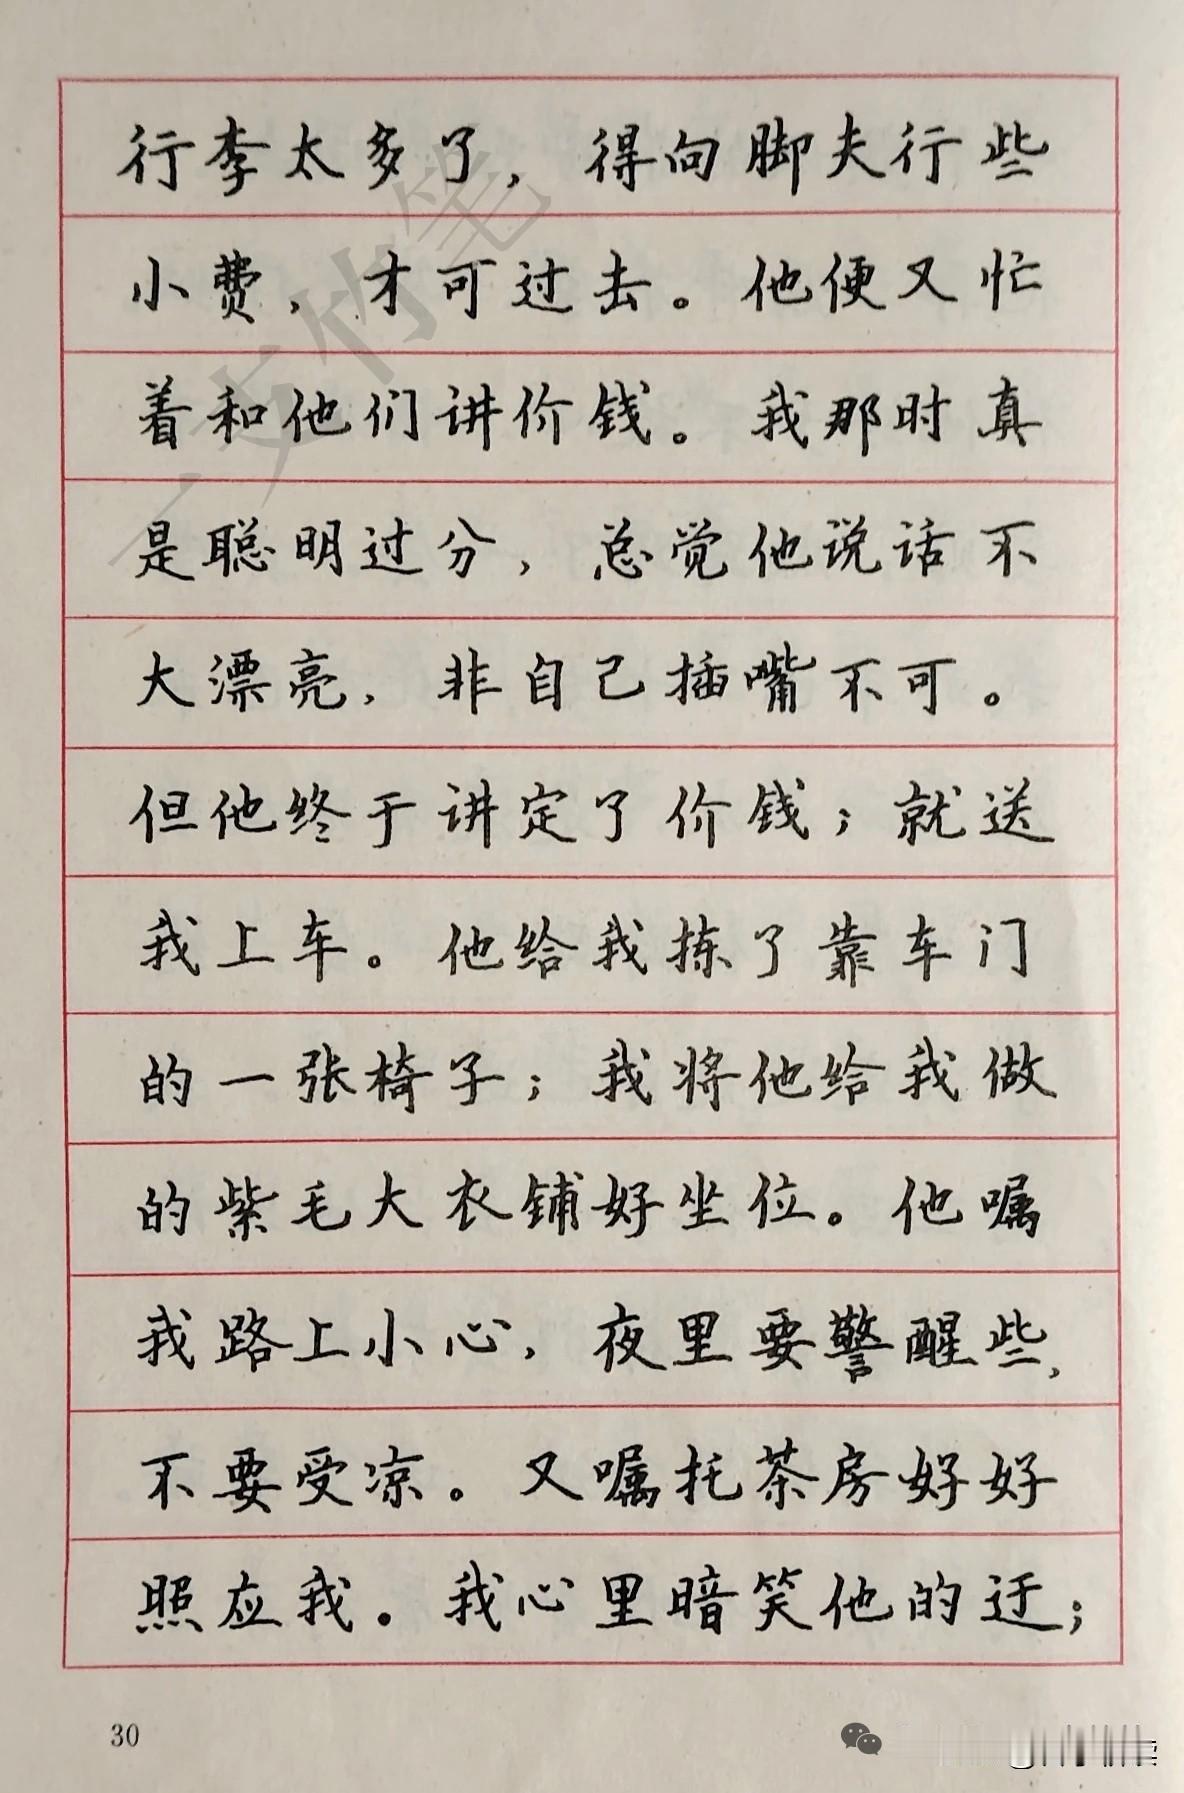 行李太多了，得向脚夫行些
小费，才可过去。他便又忙
着和他们讲价钱。我那时真
是聪明过分，总觉他说话不
大漂亮，非自己插嘴不可。
但他终于讲定了价钱；就送
我上车。他给我拣了靠车门
的一张椅子；我将他给我做
的紫毛大衣铺好坐位。他嘱
我路上小心，夜里要警醒些，
不要受凉。又嘱托茶房好好
照应我。我心里暗笑他的迂；
30
一支竹笔